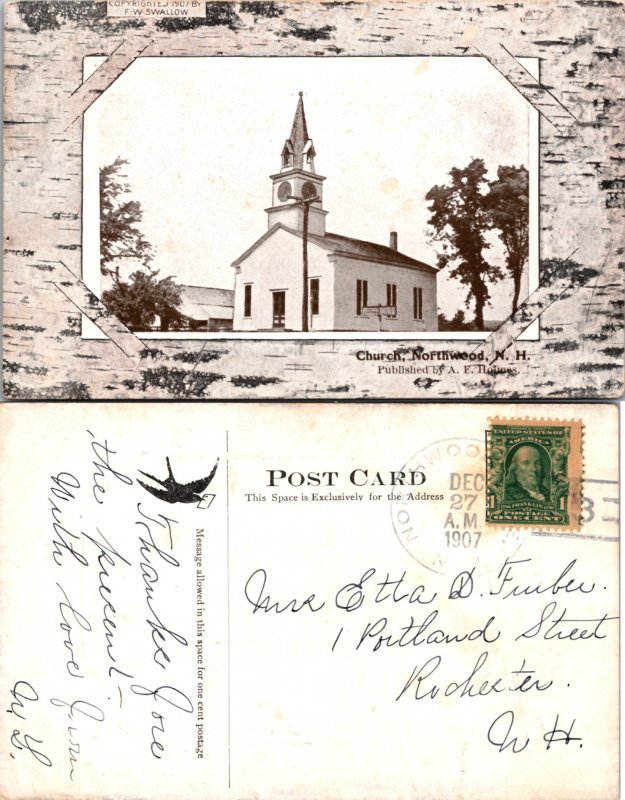 COPYRIGHTED 1907 BY
F. W. SWALLOW
Church, Northwood, N. H.
Published by A. F. Holmes.
POST CARD
This Space is Exclusively for the Address
Message allowed in this space for one cent postage
NORTHWOOD
DEC
27
A.M.
1907
N.H.
SERIES 1902
UNITED STATES OF AMERICA
FRANKLIN
POSTAGE
1 ONE CENT 1
3
Thanks for
the present —
With love from
M L.
Mrs Etta D. Furber.
1 Portland Street
Rochester.
N H.